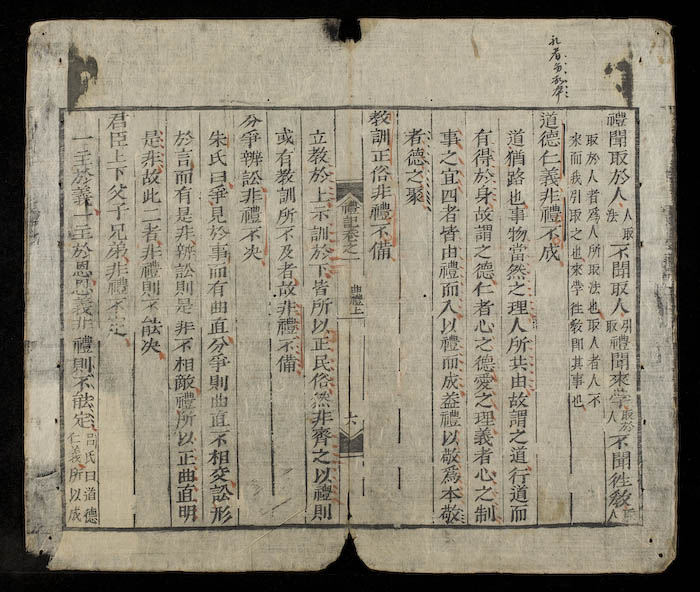 禮聞取於人人取法不聞取人引取禮聞來學取於人不聞徃教
取於人者爲人所取法也取人者人不
來而我引取之也來學徃教即其事也
道德仁義非禮不成
道猶路也事物當然之理人所共由故謂之道行道而
有得於身故謂之德仁者心之德愛之理義者心之制
事之宜四者皆由禮而入以禮而成葢禮以敬爲本敬
者德之聚
教訓正俗非禮不備
禮記卷之一
曲禮上
六
立教於上示訓於下皆所以正民俗然非齊之以禮則
或有教訓所不及者故非禮不備
分爭辨訟非禮不决
朱氏曰爭見於事而有曲直分爭則曲直不相交訟形
於言而有是非辨訟則是非不相敵禮所以正曲直明
是非故此二者非禮則不能决
君臣上下父子兄弟非禮不定
一主於義一主於恩恩義非禮則不能定呂氏曰道德仁義所以成